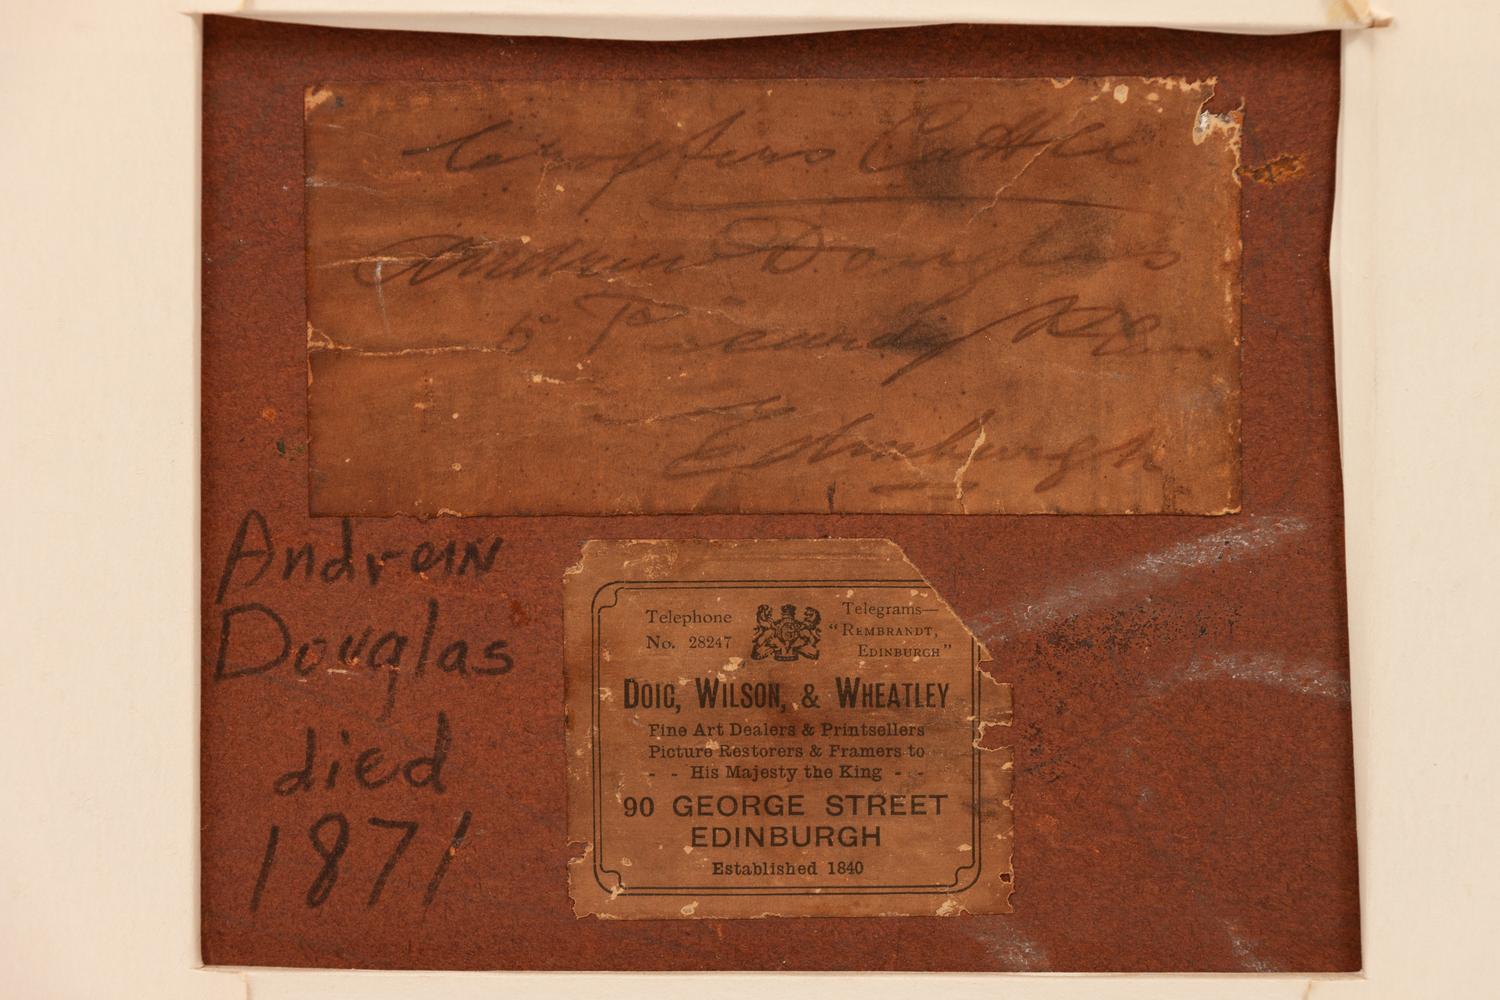 Crofters Cattle
Andrew Douglas
5 Picardy Place
Edinburgh
Andrew
Douglas
died
1871
Telephone
No. 28247
Telegrams—
"REMBRANDT,
EDINBURGH"
DOIG, WILSON, & WHEATLEY
Fine Art Dealers & Printsellers
Picture Restorers & Framers to
- - His Majesty the King - -
90 GEORGE STREET
EDINBURGH
Established 1840